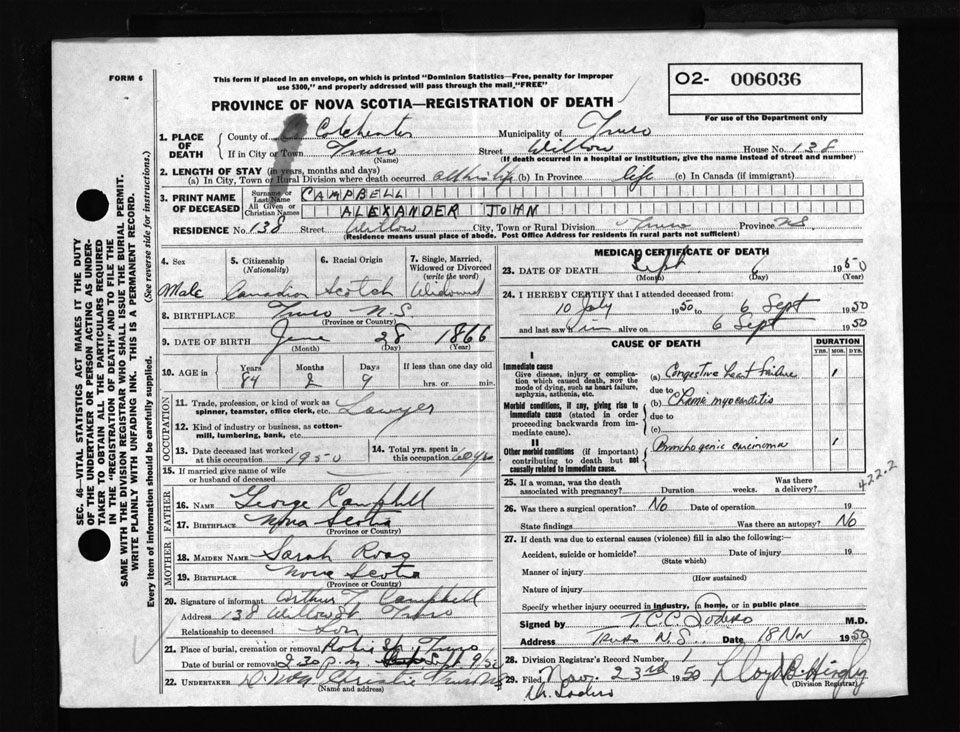 FORM 6
This form if placed in an envelope, on which is printed "Dominion Statistics—Free, penalty for improper
use $300," and properly addressed will pass through the mail, "FREE"
O2- 006036
For use of the Department only
PROVINCE OF NOVA SCOTIA—REGISTRATION OF DEATH
1. PLACE OF DEATH
County of Colchester Municipality of Truro
If in City or Town Truro (Name) Street Willow House No. 138
(If death occurred in a hospital or institution, give the name instead of street and number)
2. LENGTH OF STAY (in years, months and days)
(a) In City, Town or Rural Division where death occurred all his life (b) In Province life (c) In Canada (if immigrant)
3. PRINT NAME OF DECEASED
Surname or Last Name CAMPBELL
All Given or Christian Names ALEXANDER JOHN
RESIDENCE No. 138 Street Willow City, Town or Rural Division Truro Province NS
(Residence means usual place of abode. Post Office Address for residents in rural parts not sufficient)
4. Sex Male
5. Citizenship (Nationality) Canadian
6. Racial Origin Scotch
7. Single, Married, Widowed or Divorced (write the word) Widowed
8. BIRTHPLACE Truro N.S.
(Province or Country)
9. DATE OF BIRTH June 28 1866
(Month) (Day) (Year)
10. AGE in Years 84 Months 2 Days 9 If less than one day old hrs. or min.
OCCUPATION
11. Trade, profession, or kind of work as spinner, teamster, office clerk, etc. Lawyer
12. Kind of industry or business, as cotton-mill, lumbering, bank, etc.
13. Date deceased last worked at this occupation 1950
14. Total yrs. spent in this occupation 60 yrs
15. If married give name of wife or husband of deceased
FATHER
16. NAME George Campbell
17. BIRTHPLACE Nova Scotia
(Province or Country)
MOTHER
18. MAIDEN NAME Sarah Ross
19. BIRTHPLACE Nova Scotia
(Province or Country)
20. Signature of informant Arthur T. Campbell
Address 138 Willow St Truro
Relationship to deceased Son
21. Place of burial, cremation or removal Robie St. Truro
Date of burial or removal 2.30 p.m. Sept 9/50
22. UNDERTAKER Christie Truro NS
(Name and address)
MEDICAL CERTIFICATE OF DEATH
23. DATE OF DEATH Sept 6 1950
(Month) (Day) (Year)
24. I HEREBY CERTIFY that I attended deceased from:
10 July 1950 to 6 Sept 1950
and last saw him alive on 6 Sept 1950
CAUSE OF DEATH
DURATION
YRS. MOS. DYS.
I
Immediate cause
Give disease, injury or complication which caused death, NOT the mode of dying, such as heart failure, asphyxia, asthenia, etc.
(a) Congestive heart failure 1
due to
Morbid conditions, if any, giving rise to immediate cause (stated in order proceeding backwards from immediate cause).
(b) Chronic myocarditis
due to
(c)
II
Other morbid conditions (if important) contributing to death but not causally related to immediate cause.
Bronchogenic carcinoma 1
422.2
25. If a woman, was the death associated with pregnancy? Duration weeks. Was there a delivery?
26. Was there a surgical operation? No Date of operation 19
State findings Was there an autopsy? No
27. If death was due to external causes (violence) fill in also the following:—
Accident, suicide or homicide? Date of injury 19
(State which)
Manner of injury
(How sustained)
Nature of injury
Specify whether injury occurred in industry, in home, or in public place
Signed by T.C.C. Sodero M.D.
Address Truro N.S. Date 18 Nov 1950
28. Division Registrar's Record Number 1
29. Filed Nov. 23rd 1950 Lloyd B. Hingley
(Division Registrar)
Dr. Sodero
SEC. 46—VITAL STATISTICS ACT MAKES IT THE DUTY
OF THE UNDERTAKER OR PERSON ACTING AS UNDER-
TAKER TO OBTAIN ALL THE PARTICULARS REQUIRED
IN THE "REGISTRATION OF DEATH" AND TO FILE THE
SAME WITH THE DIVISION REGISTRAR WHO SHALL ISSUE THE BURIAL PERMIT.
WRITE PLAINLY WITH UNFADING INK. THIS IS A PERMANENT RECORD.
Every item of information should be carefully supplied. (See reverse side for instructions.)